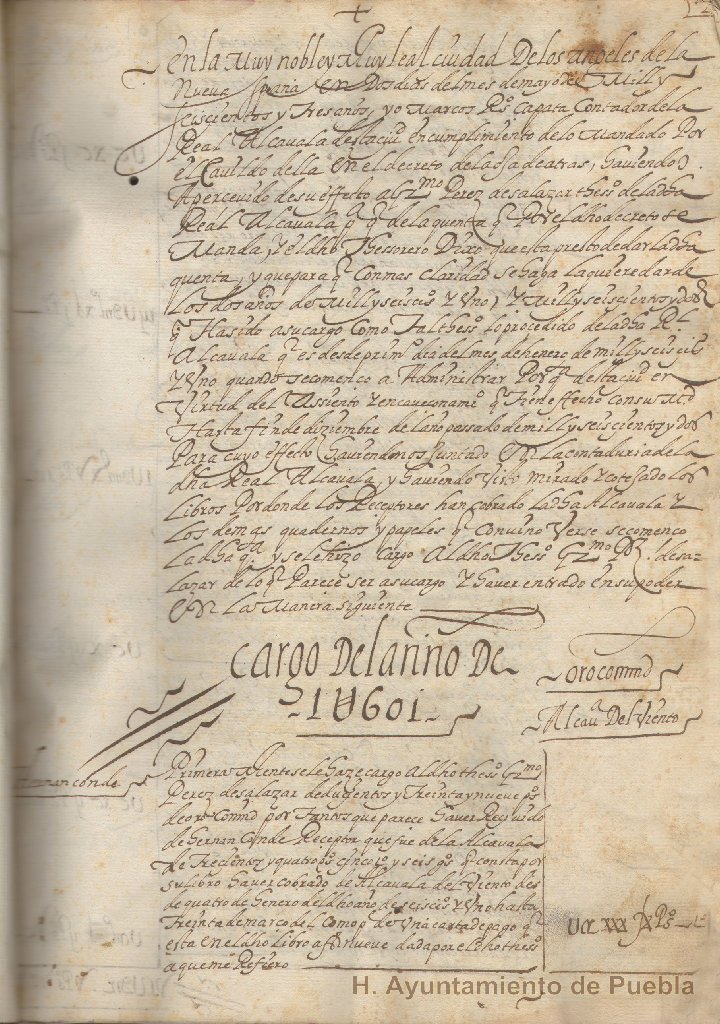 En la Muy noble y Muy leal ciudad De los angeles de la
Nueva spaña En Dos dias del mes de mayo de Mill y
seiscientos y Tres años, yo Marcos Rs Capata Contador de la
Real Alcavala desta ciud en cumplimiento de lo Mandado Por
el Cavildo della En el decreto de la oja de atras, haviendo
Apercevido de su effecto a Gmo Perez de salazar thesro de la dha
Real Alcavala pa q de la quenta q Por el dho decreto se
Manda, y El dho Thessorero Dixo que esta presto de dar la dha
quenta, y que para q Con mas claridad se haga la quiere dar de
Los dos años de Mill y seisciso y Uno, y Mill y seiscientos y dos
q Ha sido a su cargo Como Tal thesro lo procedido de la dha Rl
Alcavala q es desde primo dia del mes de henero de mill y seiscios
y Uno quando se comenco a Administrar Por esta ciud en
Virtud del Assiento y encaveconamio q tiene ffecho Con su Magd
Hasta fin de diziembre del año passado de mill y seiscientos y dos
Para cuyo effecto haviendonos Juntado En la contaduria de la
dha Real Alcavala, y haviendo Visto mirado y cotejado los
libros Por donde los Receptores han cobrado la dha Alcavala y
Los demas quadernos y papeles q Convino Verse se comenco
La dha qta y se le hizo Cargo Al dho Thesro Gmo Pz de sa-
lazar de lo q Parece ser a su cargo y haver entrado en su poder
En la Manera siguiente
Cargo Del anño De
1U601
oro comund
Alcava Del Viento
Hernan conde
Primera Mente se le haze cargo Al dho thesro Gmo
Perez de salazar de ducientos y Treinta y nueve ps
de oro Comund por Tantos que parece haver Rescivido
de hernan Conde Receptor que fue de la Alcavala
de Trecientos y quatro ps cinco ts y seis gs q consta por
su libro haver cobrado de Alcavala del Viento des
de quatro de henero del dho año de seiscios y Uno hasta
Treinta de março del Como pe de Una carta de pago q
esta En el dho libro a fs nueve dada por el dho thesro
a que me Refiero
UCC XXX IX Ps
H. Ayuntamiento de Puebla